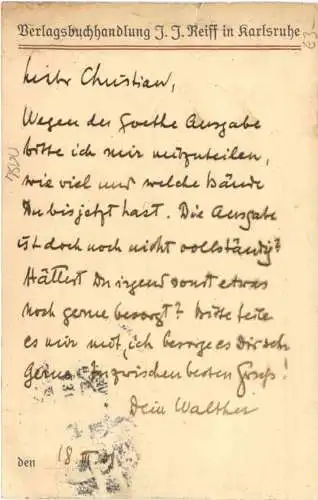 Verlagsbuchhandlung J. J. Reiff in Karlsruhe
63.-
Lieber Christian,
Wegen der Goethe Ausgabe
bitte ich mir mitzuteilen,
wie viel und welche Bände
Du bis jetzt hast. Die Ausgabe
ist doch noch nicht vollständig?
Hättest Du irgend sonst etwas
noch gerne besorgt? Bitte teile
es mir mit, ich besorge es Dir sehr
gerne. Inzwischen besten Gruß!
Dein Walther
den 18. III